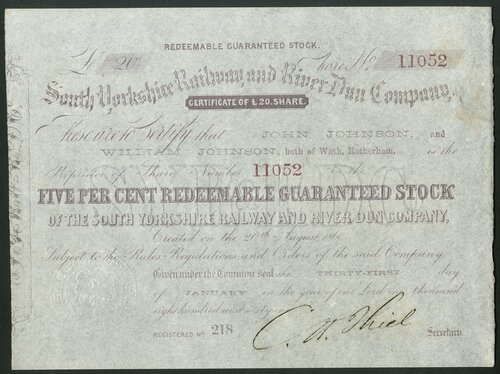 REDEEMABLE GUARANTEED STOCK.
£ 20 Share No. 11052
South Yorkshire Railway and River Dun Company,
CERTIFICATE OF £20. SHARE.
These are to Certify that JOHN JOHNSON, and
WILLIAM JOHNSON, both of Wath, Rotherham, is the
Proprietor of Share Number 11052 in the
FIVE PER CENT REDEEMABLE GUARANTEED STOCK
OF THE SOUTH YORKSHIRE RAILWAY AND RIVER DUN COMPANY,
Created on the 20th August 1860
Subject to the Rules Regulations and Orders of the said Company
Given under the Common Seal the THIRTY-FIRST day
of JANUARY in the year of our Lord one thousand
eight hundred and sixty
REGISTERED No 218 Secretary.